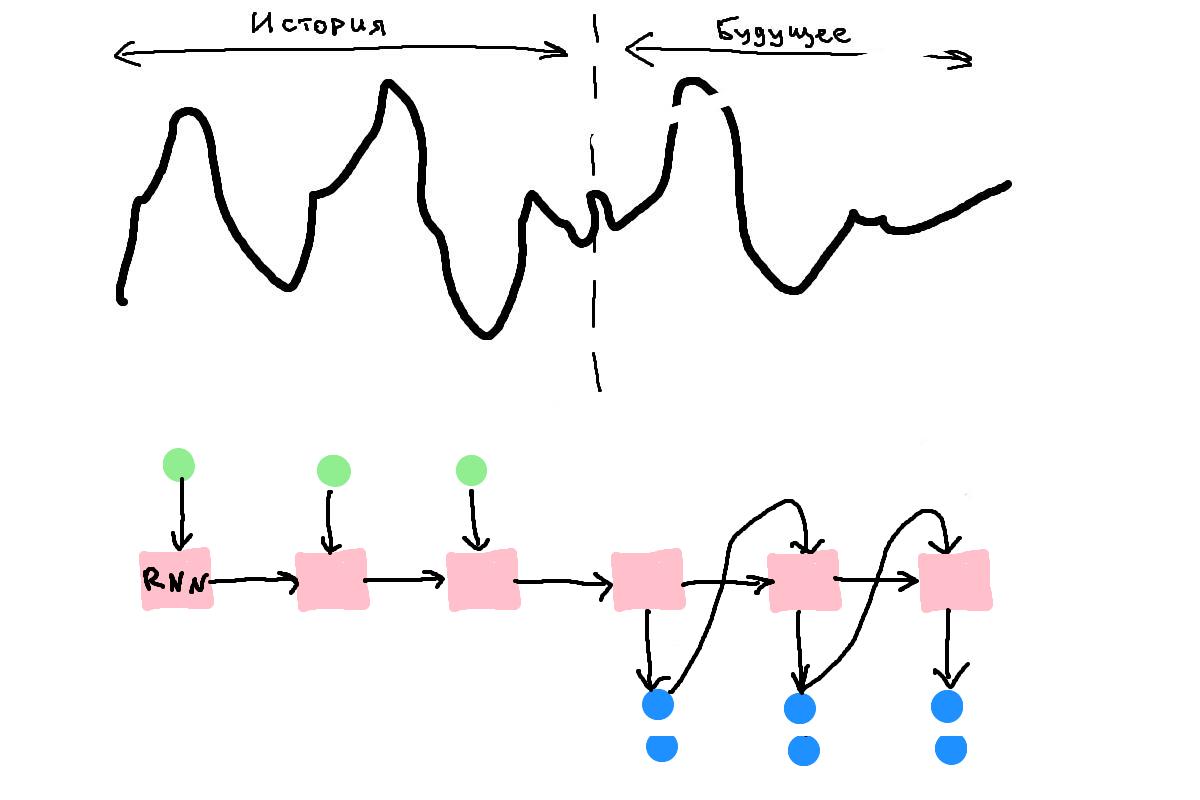 История
Будущее
RNN